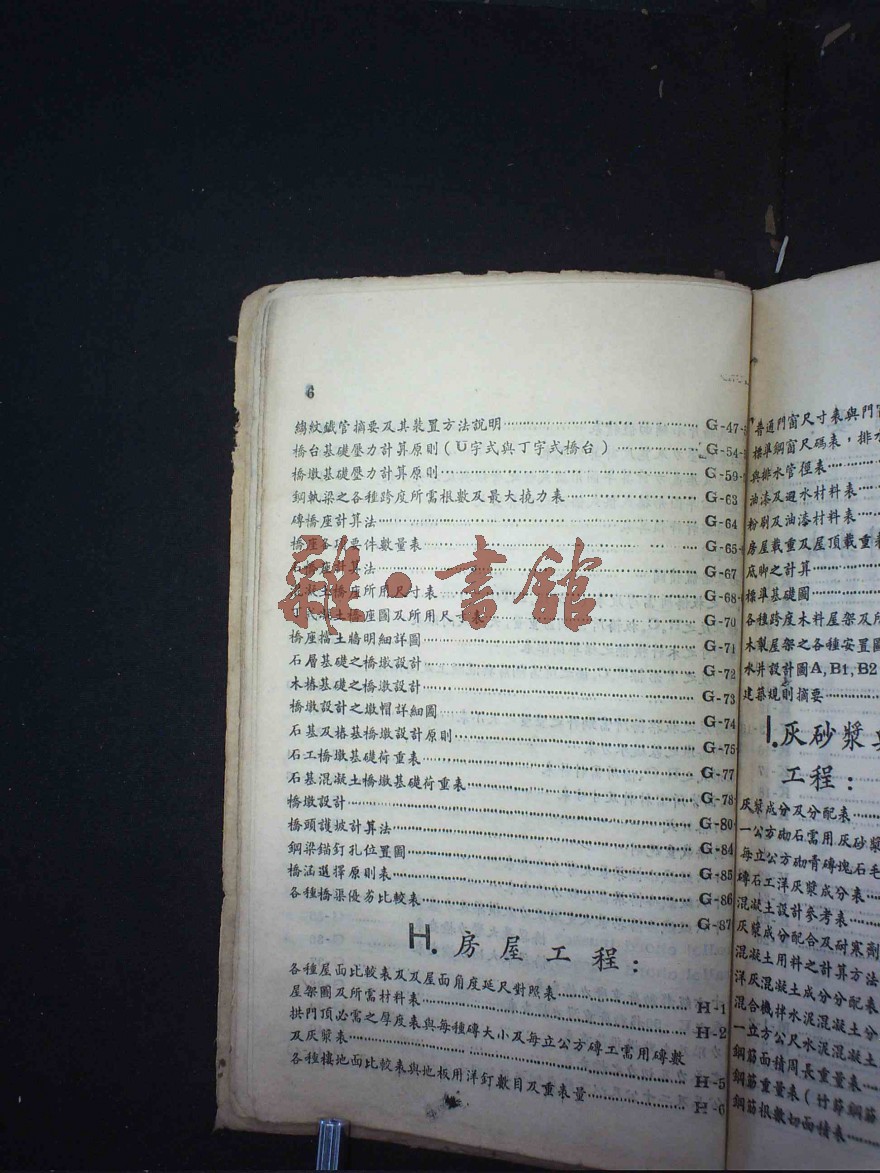 6
縐紋鐵管摘要及其裝置方法說明 G-47-
橋台基礎壓力計算原則(U字式與丁字式橋台) G-54-
橋墩基礎壓力計算原則 G-59-
鋼軌梁之各種跨度所需根數及最大撓力表 G-63
磚橋座計算法 G-64
橋座各項要件數量表 G-65-
石橋座計算法 G-67
橋座所用尺寸表 G-68-
土橋座圖及所用尺寸表 G-70
橋座擋土牆明細詳圖 G-71
石層基礎之橋墩設計 G-72
木樁基礎之橋墩設計 G-73
橋墩設計之墩帽詳細圖 G-74
石基及樁基橋墩設計原則 G-75
石工橋墩基礎荷重表 G-77
石基混凝土橋墩基礎荷重表 G-78
橋墩設計 G-80
橋頭護坡計算法 G-84
鋼梁錨釘孔位置圖 G-85
橋涵選擇原則表 G-86
各種橋渠優劣比較表 G-87
H. 房屋工程:
各種屋面比較表及及屋面角度延尺對照表 H-1
屋架圖及所需材料表 H-2
拱門頂必需之厚度表與每種磚大小及每立公方磚工需用磚數
及灰漿表 H-5
各種樓地面比較表與地板用洋釘數目及重表量 H-6
普通門窗尺寸表與門窗
標準鋼窗尺碼表,排水
與排水管徑表
油漆及避水材料表
粉刷及油漆材料表
房屋載重及屋頂載重表
底脚之計算
標準基礎圖
各種跨度木料屋架及所
木製屋架之各種安置圖
水井設計圖A,B1,B2
建築規則摘要
I.灰砂漿
工程:
灰漿成分及分配表
一公方砌石需用灰砂漿
每立公方砌青磚塊石毛
磚石工洋灰漿成分表
混凝土設計參考表
灰漿成分配合及耐寒劑
混凝土用料之計算方法
洋灰混凝土成分分配表
混合機拌水泥混凝土分
一立方公尺水泥混凝土
鋼筋面積周長重量表
鋼筋重量表(竹節鋼筋
鋼筋根數切面積表
雜·書館